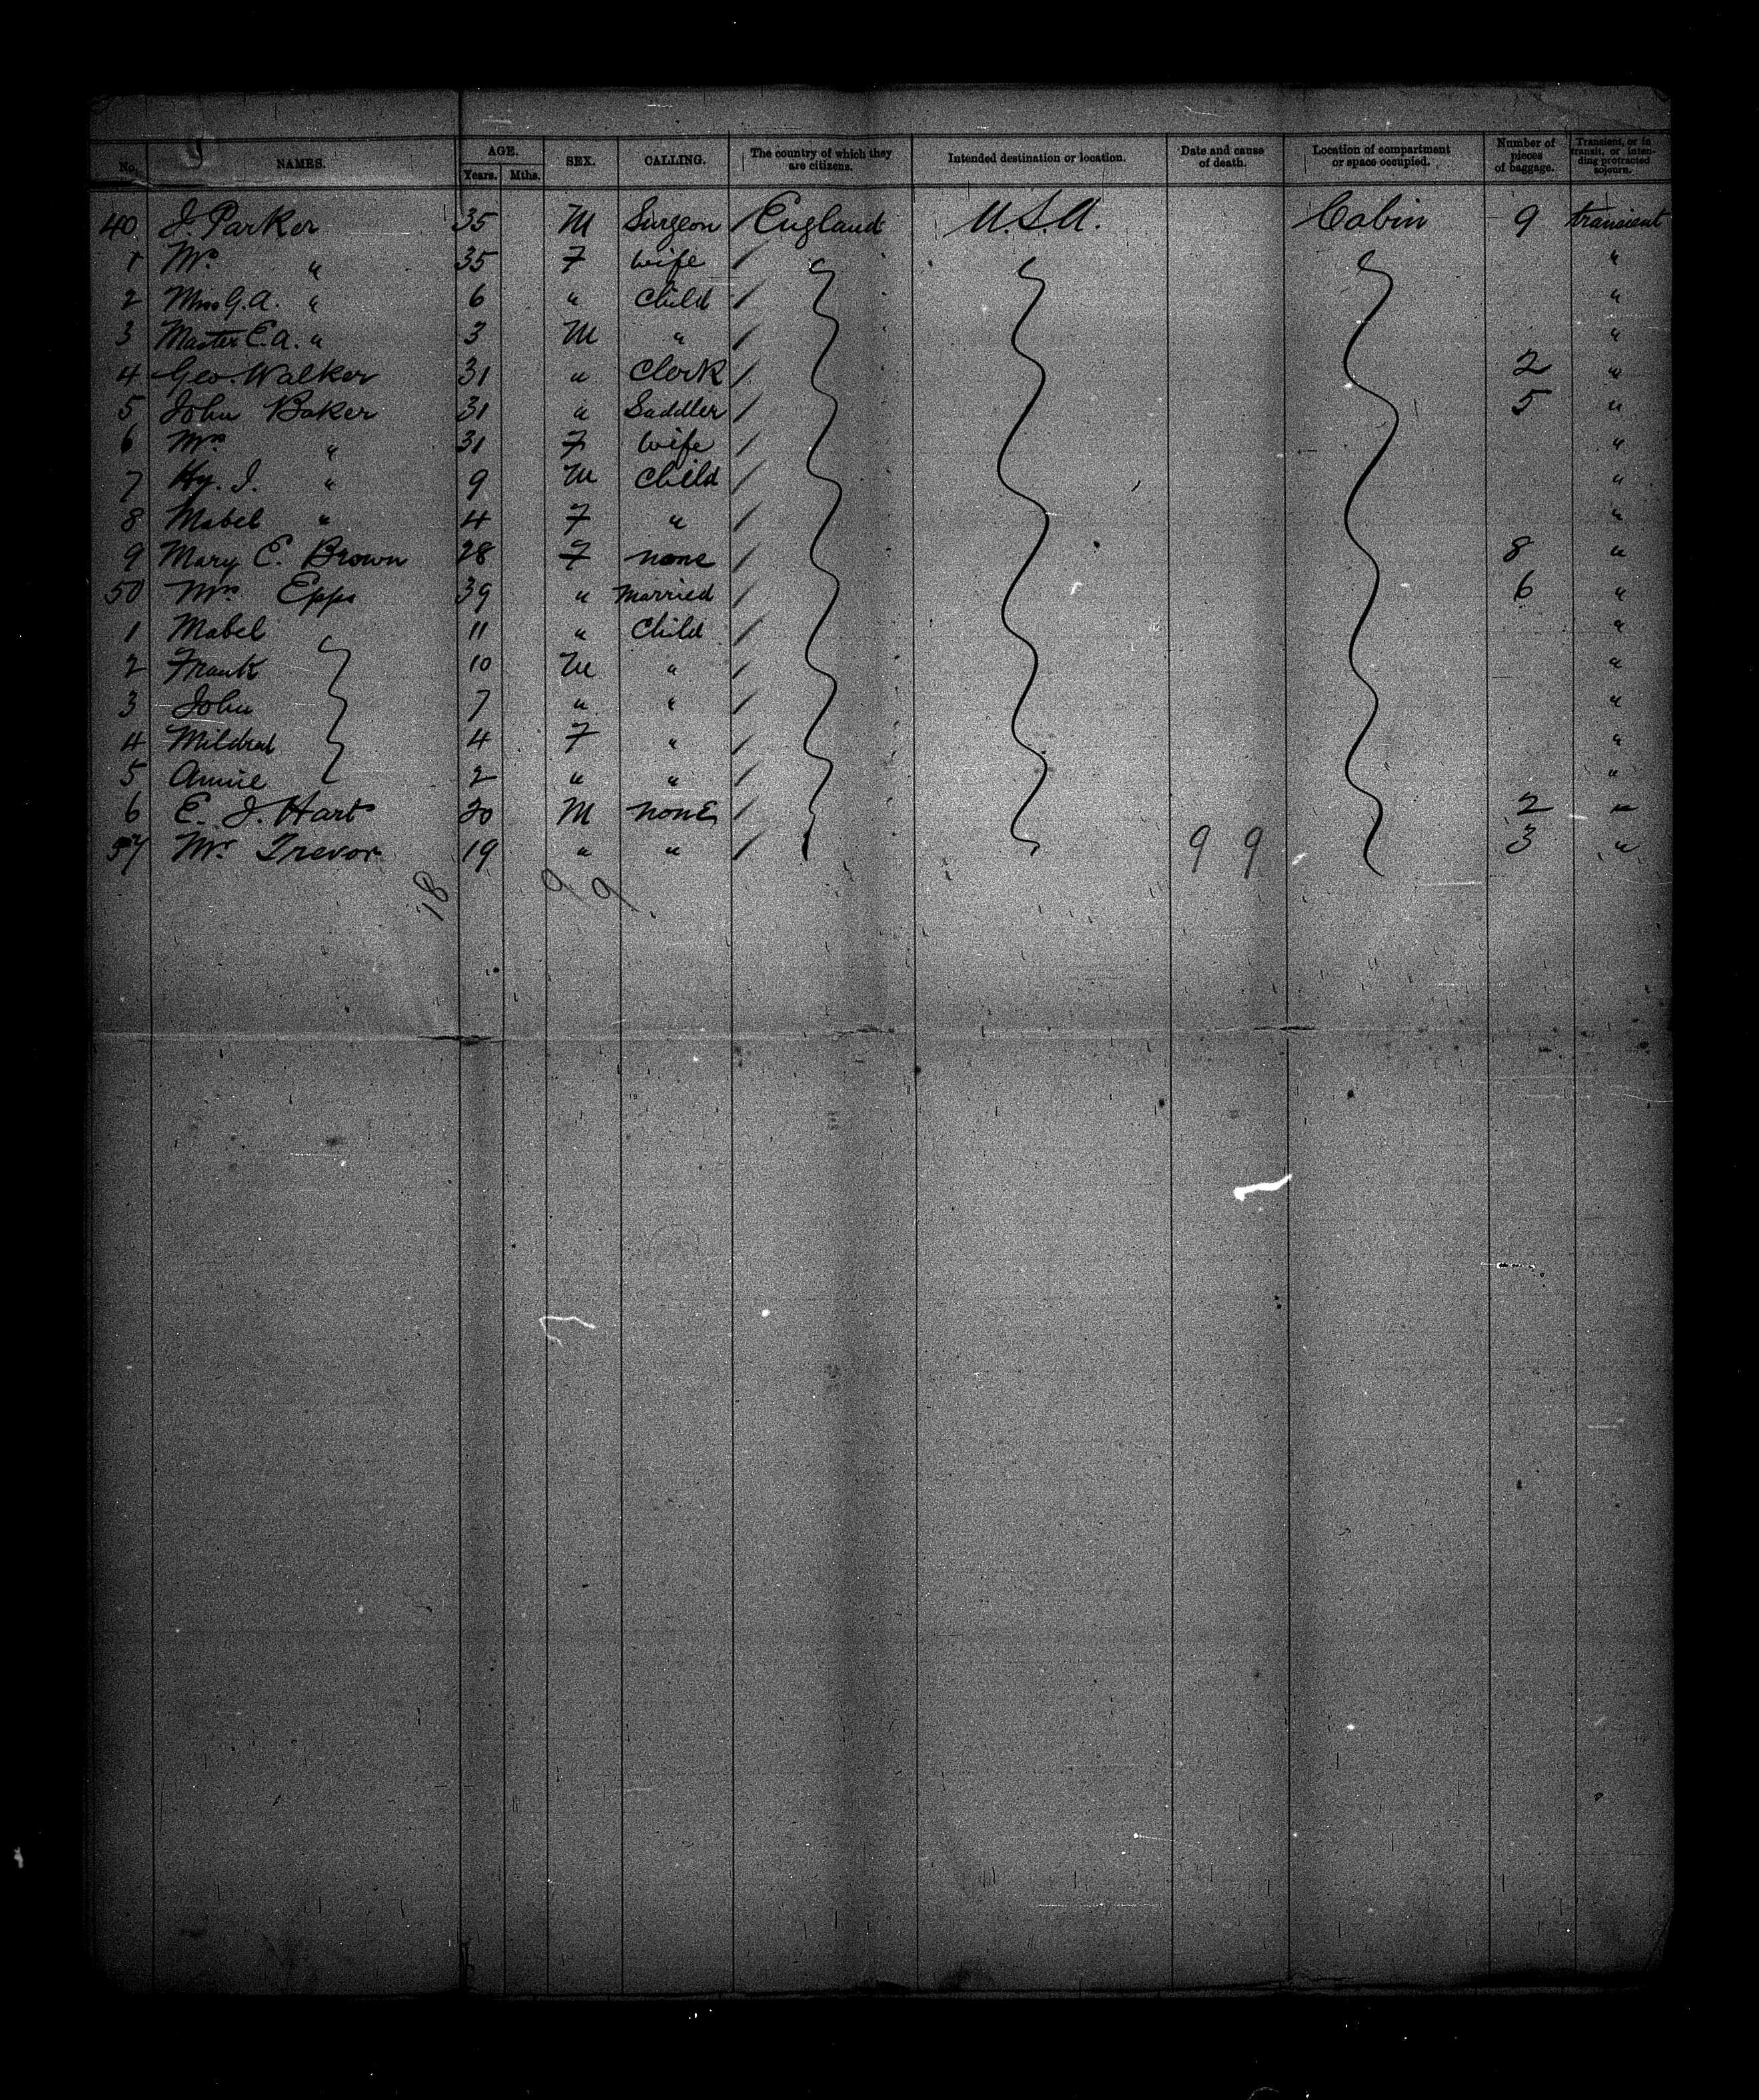 No. NAMES. AGE. Years. Mths. SEX. CALLING. The country of which they are citizens. Intended destination or location. Date and cause of death. Location of compartment or space occupied. Number of pieces of baggage. Transient, or in transit, or intending protracted sojourn.
40 J. Parker 35 M Surgeon / England U.S.A. Cabin 9 transient
1 Mrs " 35 F wife / "
2 Miss G.A. " 6 " Child / "
3 Master E.A. " 3 M " / "
4 Geo. Walker 31 " Clerk / 2 "
5 John Baker 31 " Saddler / 5 "
6 Mrs " 31 F wife / "
7 Hy. J. " 9 M Child / "
8 Mabel " 4 F " / "
9 Mary E. Brown 28 F none / 8 "
50 Mrs Epps 39 " Married / 6 "
1 Mabel 11 " Child / "
2 Frank 10 M " / "
3 John 7 " " / "
4 Mildred 4 F " / "
5 Annie 2 " " / "
6 E. J. Hart 20 M none / 2 "
57 Mr Trevor 19 " " / 9 9 3 "
18 9 9